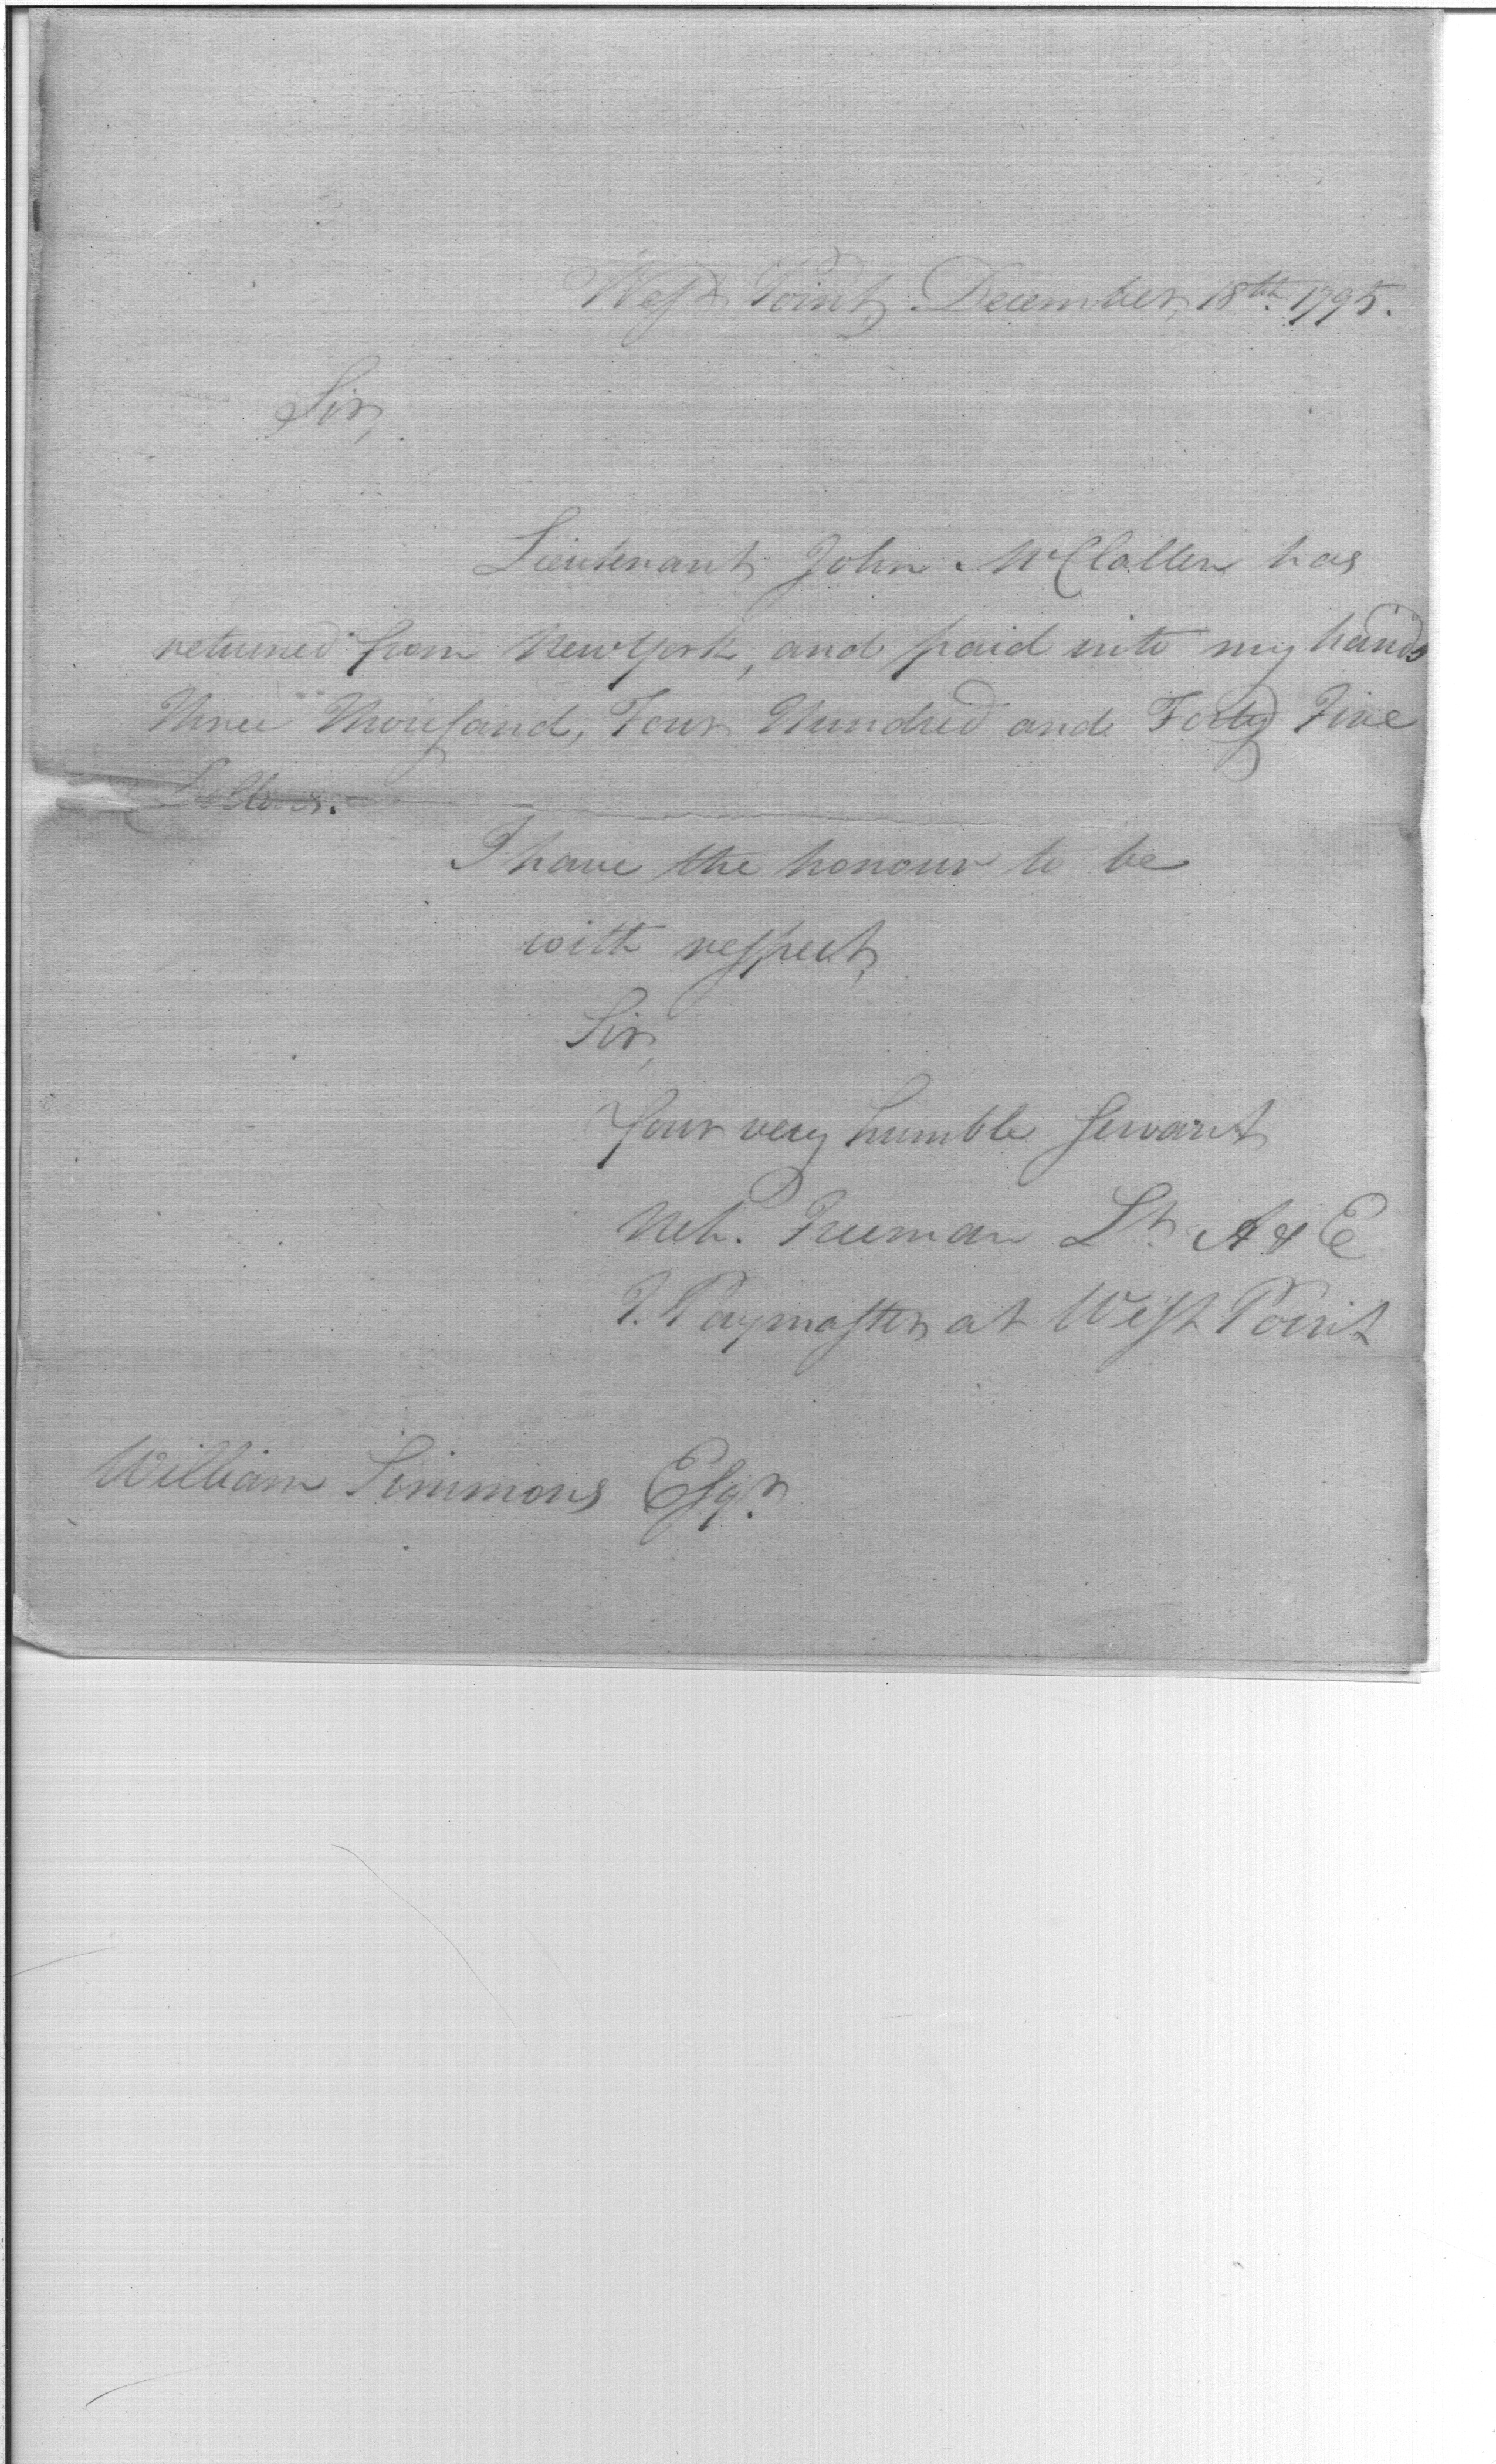 West Point, December, 18th. 1795.
Sir,
Lieutenant John McClallen has
returned from NewYork, and paid into my hands
Three Thousand, Four Hundred and Forty Five
Dollars.
I have the honour to be
with respect,
Sir,
Your very humble Servant
Neh. Freeman Lt. A & E
Paymaster at West Point
William Simmons Esqr.